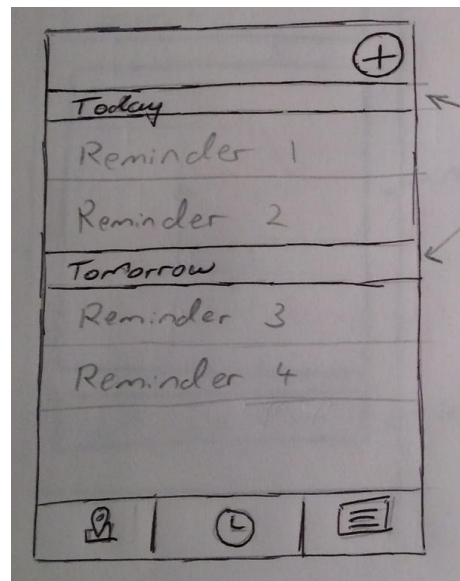 Today
Reminder 1
Reminder 2
Tomorrow
Reminder 3
Reminder 4